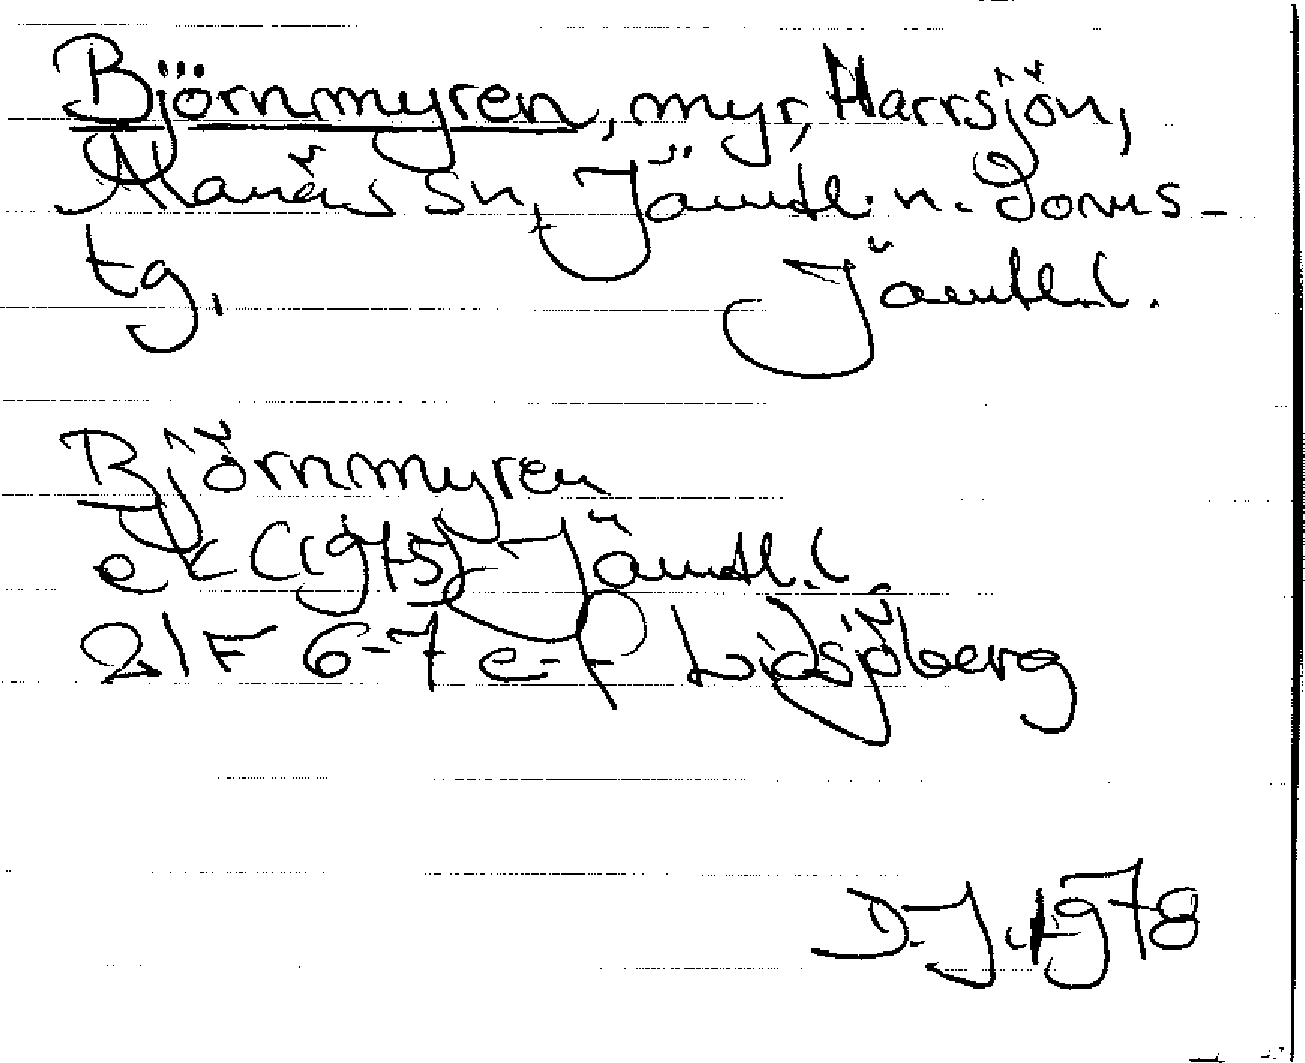 Björnmyren, myr, Harrsjön,
Alanäs sn, Jämtl. n. Doms-
tg, Jämtl.l.
Björnmyren
ek (1975) Jämtl.l.
21F 6-7 e-f Lidsjöberg
D.J. 1978